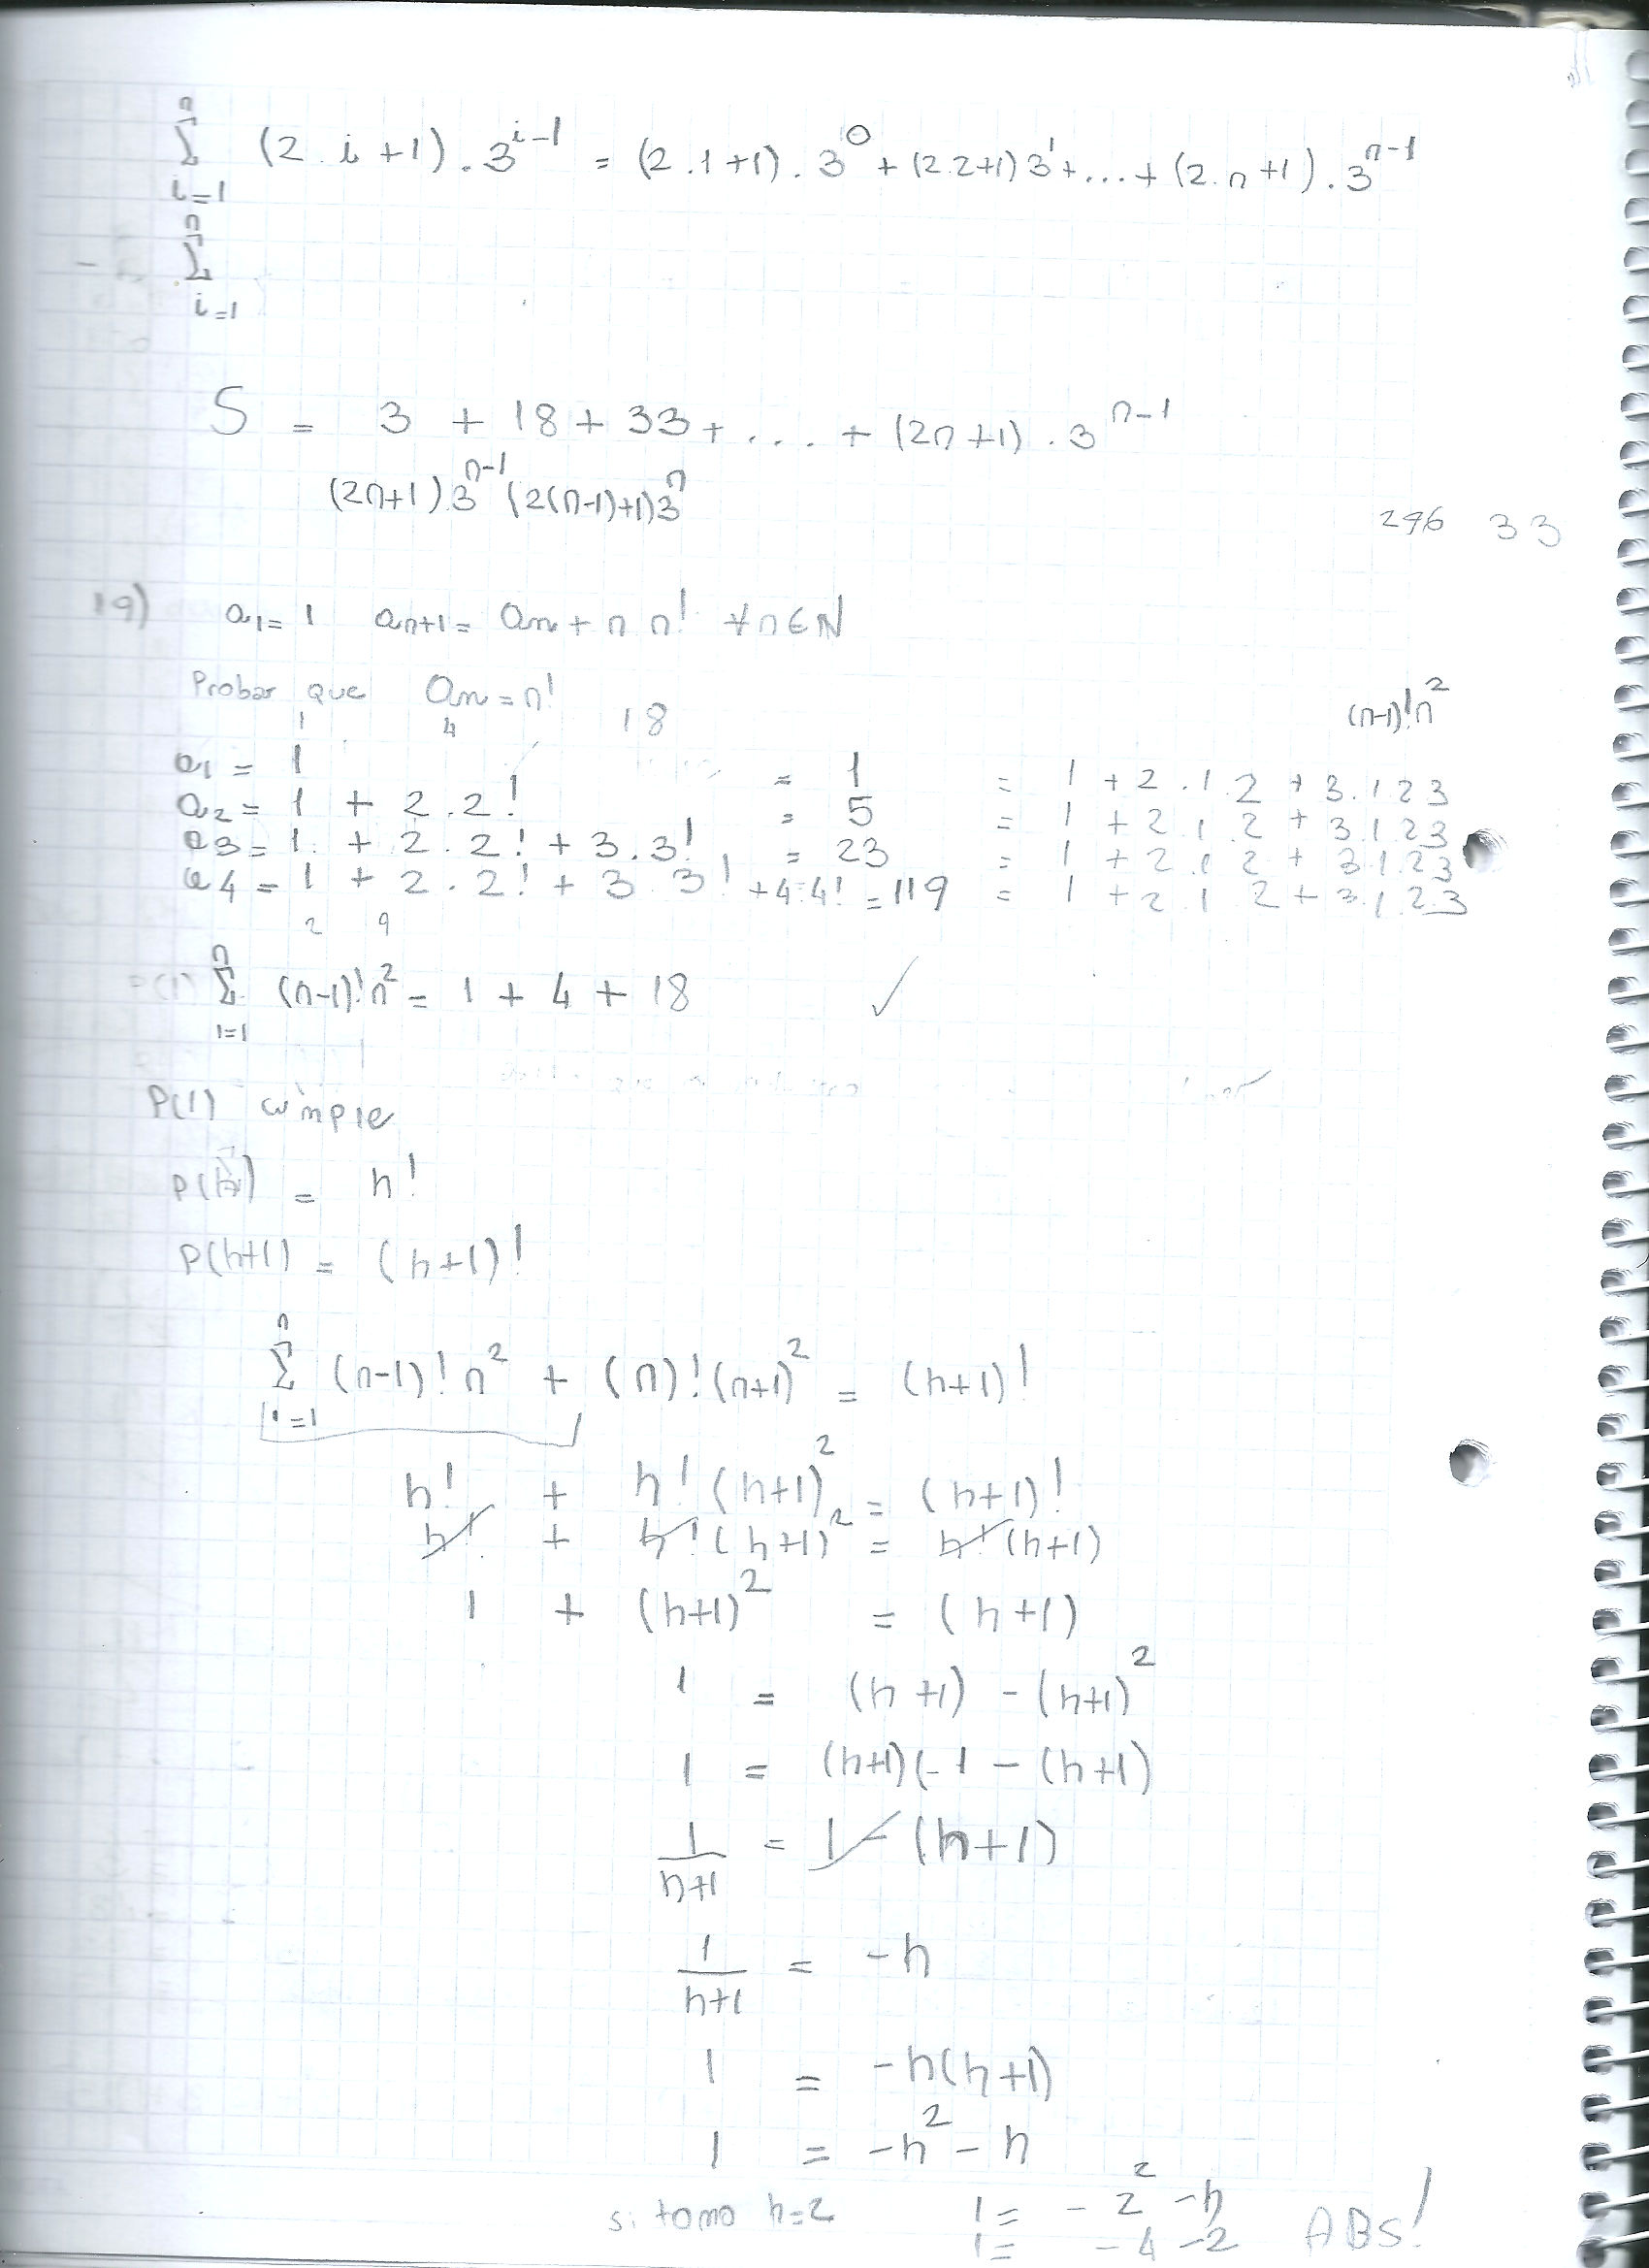 n
∑ (2.i+1).3^{i-1} = (2.1+1).3^0 + (2.2+1)3^1+...+(2.n+1).3^{n-1}
i=1
n
- ∑
i=1
S = 3 + 18 + 33 + .... + (2n+1).3^{n-1}
(2n+1)3^{n-1} (2(n-1)+1)3^n
33
19) a1=1 an+1= an + n n! ∀n∈N
Probar que an=n! (n-1)!n^2
1 4 18
a1 = 1 = 1 = 1 + 2.1.2 + 3.1 2 3
a2 = 1 + 2.2! = 5 = 1 + 2 1 2 + 3.1 2 3
a3 = 1. + 2.2! + 3.3! = 23 = 1 + 2.1 2 + 3 1.2 3
a4 = 1 + 2.2! + 3 3! +4.4! = 119 = 1 + 2 1 2 + 3.1 2 3
2 9
n
∑ (n-1)!n^2 = 1 + 4 + 18 ✓
i=1
P(1) cumple
P(h) = h!
P(h+1) = (h+1)!
n
∑ (n-1)! n^2 + (n)!(n+1)^2 = (h+1)!
i=1
h! + h!(h+1)^2 = (h+1)!
h! + h!(h+1)^2 = h!(h+1)
1 + (h+1)^2 = (h+1)
1 = (h+1) - (h+1)^2
1 = (h+1)(-1 - (h+1)
1/(h+1) = 1 - (h+1)
1/(h+1) = -h
1 = -h(h+1)
1 = -h^2 - h
si tomo h=2 1 = -2^2 -h ABS!
1 = -4 -2